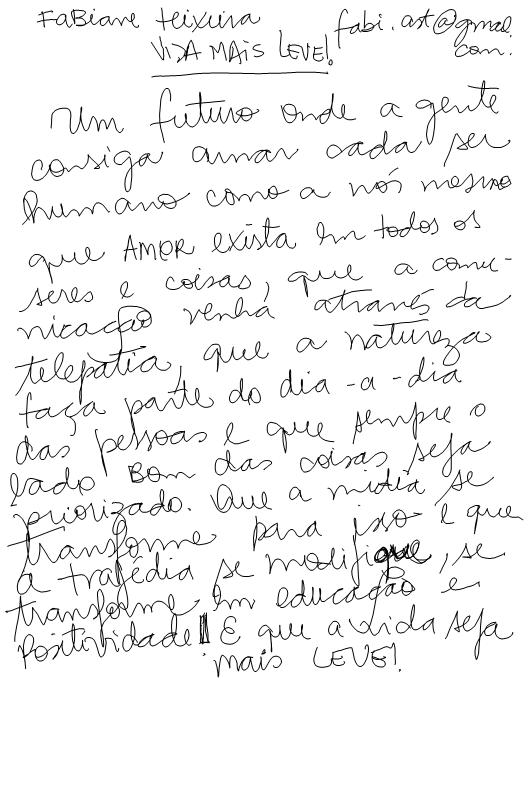 FaBiane teixeira fabi.art@gmail.
com.
VIDA MAIS LEVE!
Um futuro onde a gente
consiga amar cada ser
humano como a nós mesmo
que AMOR exista em todos os
seres e coisas, que a comu-
nicação venha através da
telepatia, que a natureza
faça parte do dia-a-dia
das pessoas e que sempre o
lado BOM das coisas seja
priorizado. Que a mídia se
transforme para isso e que
a tragédia se modifique, se
transforme em educação e
Positividade! E que a vida seja
mais LEVE!